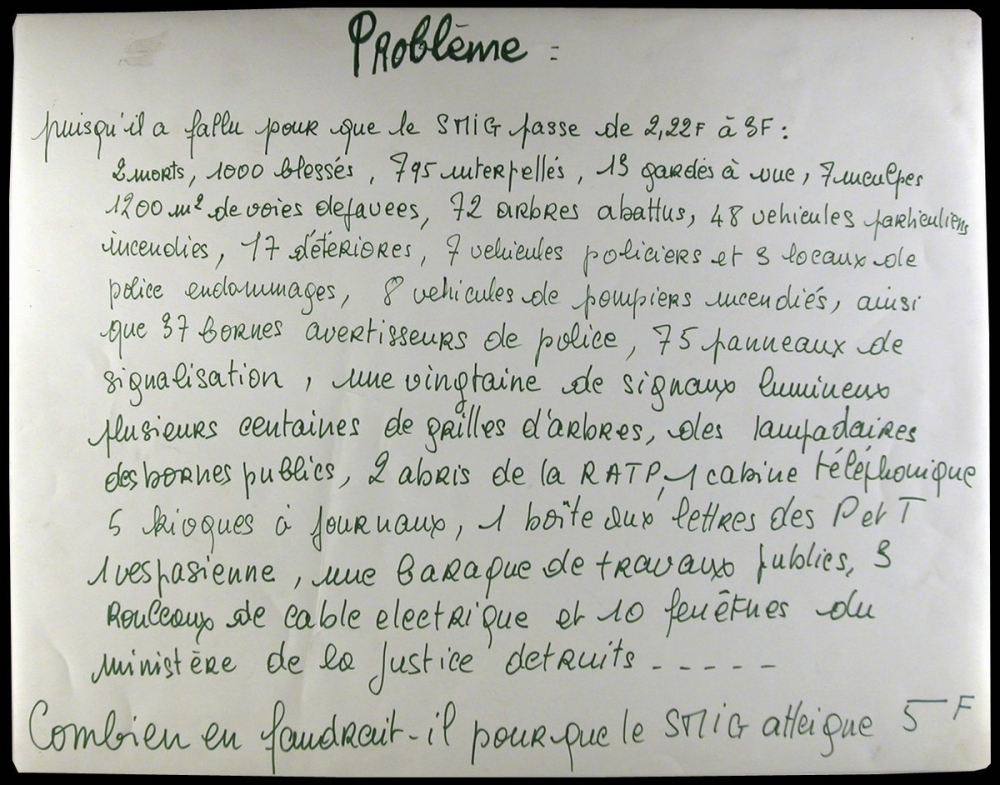 Problème :
puisqu'il a fallu pour que le SMIG passe de 2,22F à 3F :
2 morts, 1000 blessés, 795 interpellés, 13 gardés à vue, 7 inculpes
1200 m² de voies depavees, 72 arbres abattus, 48 vehicules particuliers
incendies, 17 détériores, 7 vehicules policiers et 3 locaux de
police endommages, 8 vehicules de pompiers incendiés, ainsi
que 37 bornes avertisseurs de police, 75 panneaux de
signalisation, une vingtaine de signaux lumineux
plusieurs centaines de grilles d'arbres, des lampadaires
des bornes publics, 2 abris de la RATP, 1 cabine téléphonique
5 kioques à journaux, 1 boîte aux lettres des P et T
1 vespasienne, une baraque de travaux publics, 3
rouleaux de cable electrique et 10 fenêtres du
ministère de la Justice detruits - - - - -
Combien en faudrait-il pour que le SMIG atteigne 5F